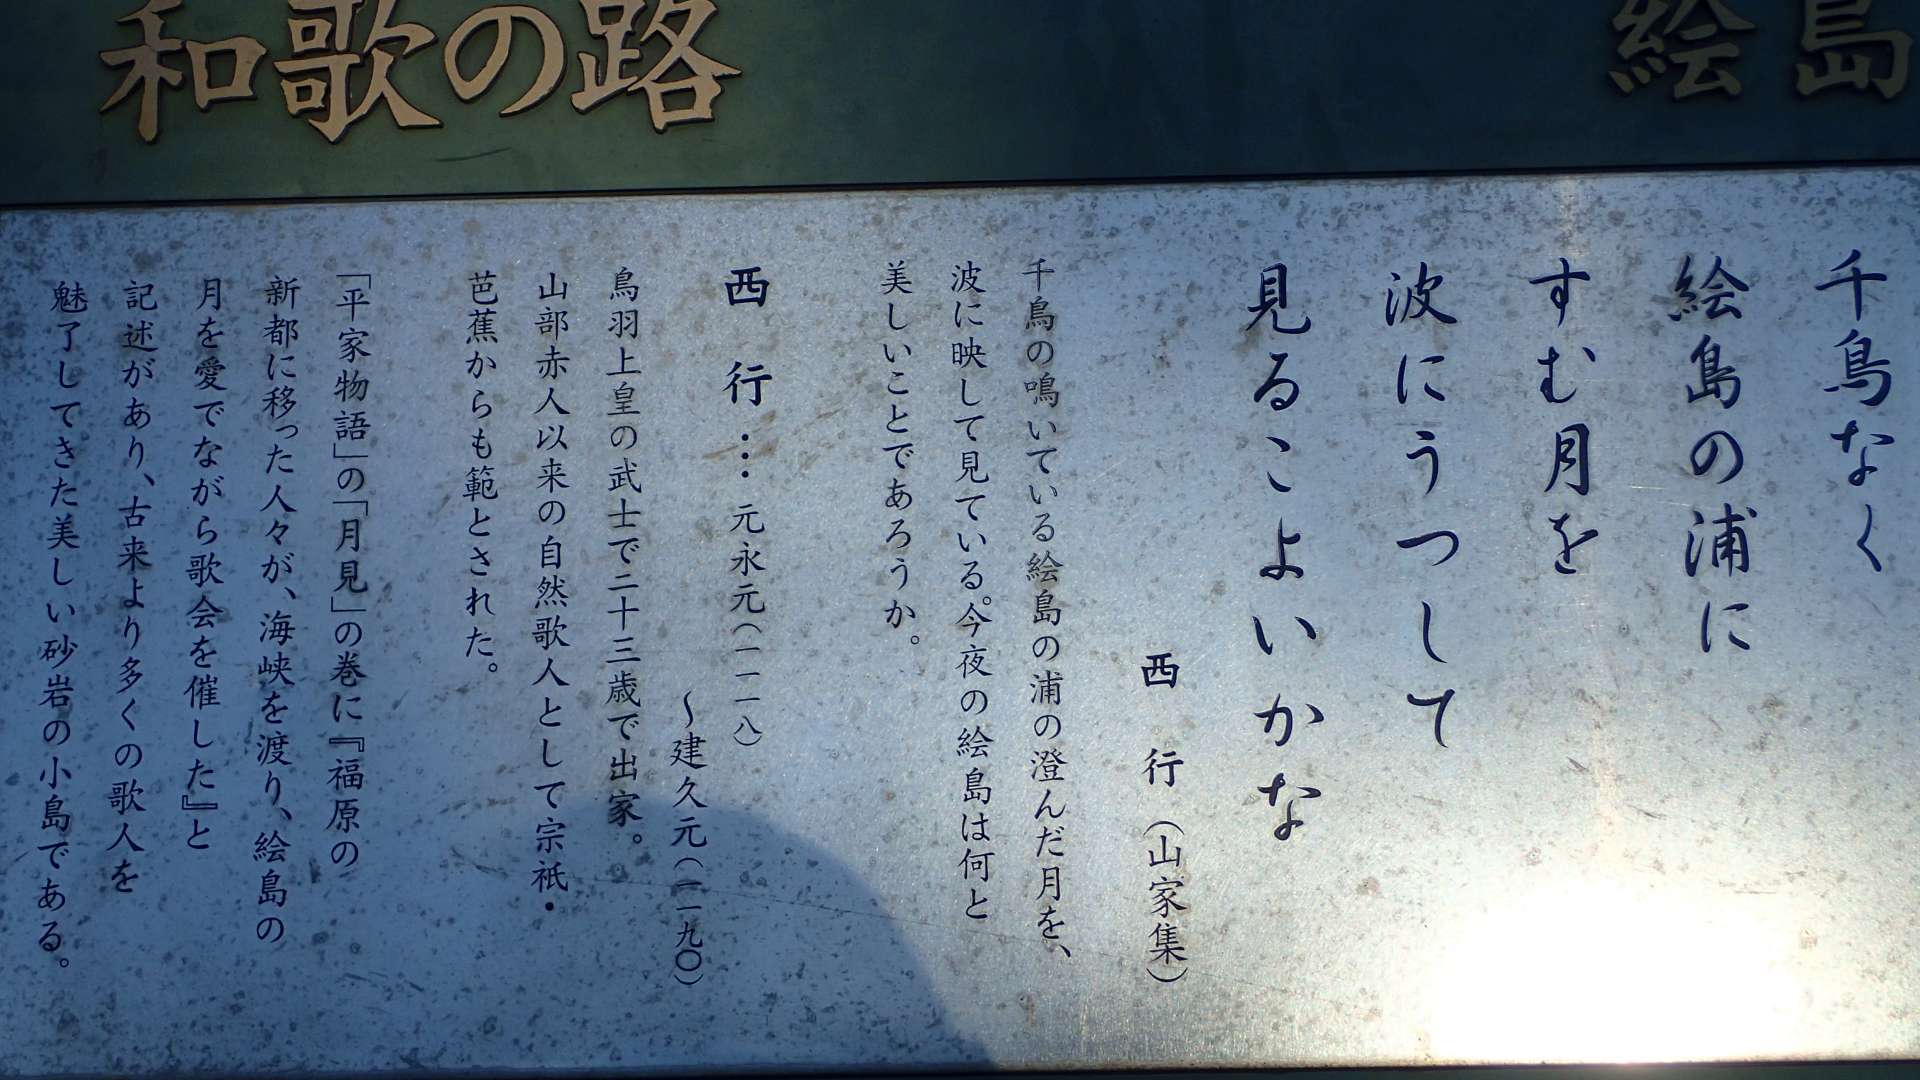 和歌の路
絵島
千鳥なく
絵島の浦に
すむ月を
波にうつして
見るこよいかな
西 行 (山家集)
千鳥の鳴いている絵島の浦の澄んだ月を、
波に映して見ている。今夜の絵島は何と
美しいことであろうか。
西 行 … 元永元(一一一八)
～建久元(一一九〇)
鳥羽上皇の武士で二十三歳で出家。
山部赤人以来の自然歌人として宗祇・
芭蕉からも範とされた。
「平家物語」の「月見」の巻に『福原の
新都に移った人々が、海峡を渡り、絵島の
月を愛でながら歌会を催した』と
記述があり、古来より多くの歌人を
魅了してきた美しい砂岩の小島である。